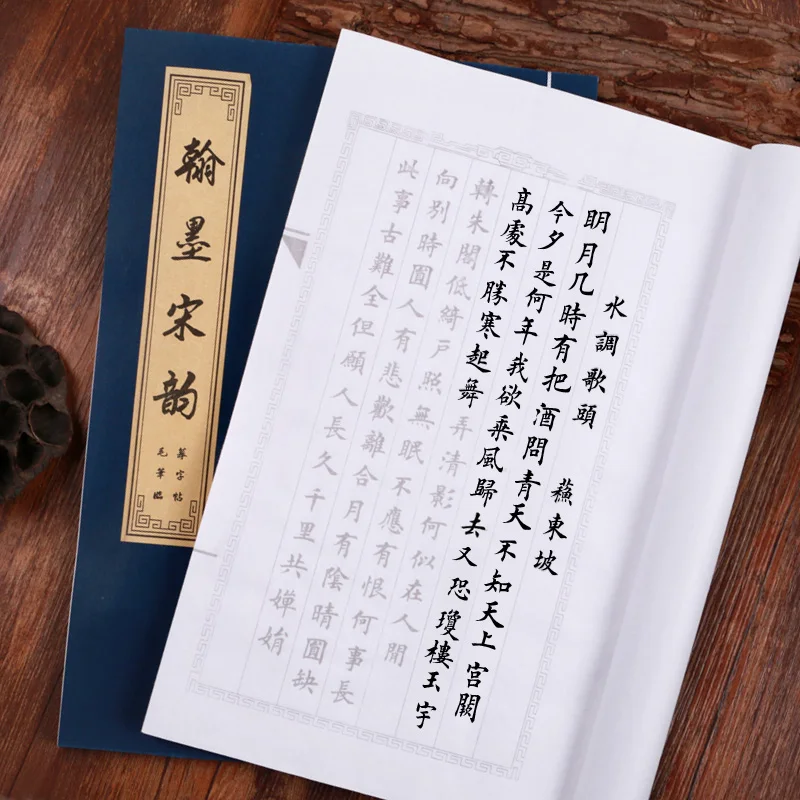 翰墨宋韵
毛筆臨
摹字帖
水調歌頭 蘓東坡
眀月几時有把酒問青天不知天上宫闕
今夕是何年我欲乗風歸去又恐瓊樓玉宇
髙處不勝寒起舞弄清影何似在人間
轉朱閣低綺戶照無眠不應有恨何事長
向別時圓人有悲歡離合月有陰晴圓缺
此事古難全但願人長久千里共嬋娟